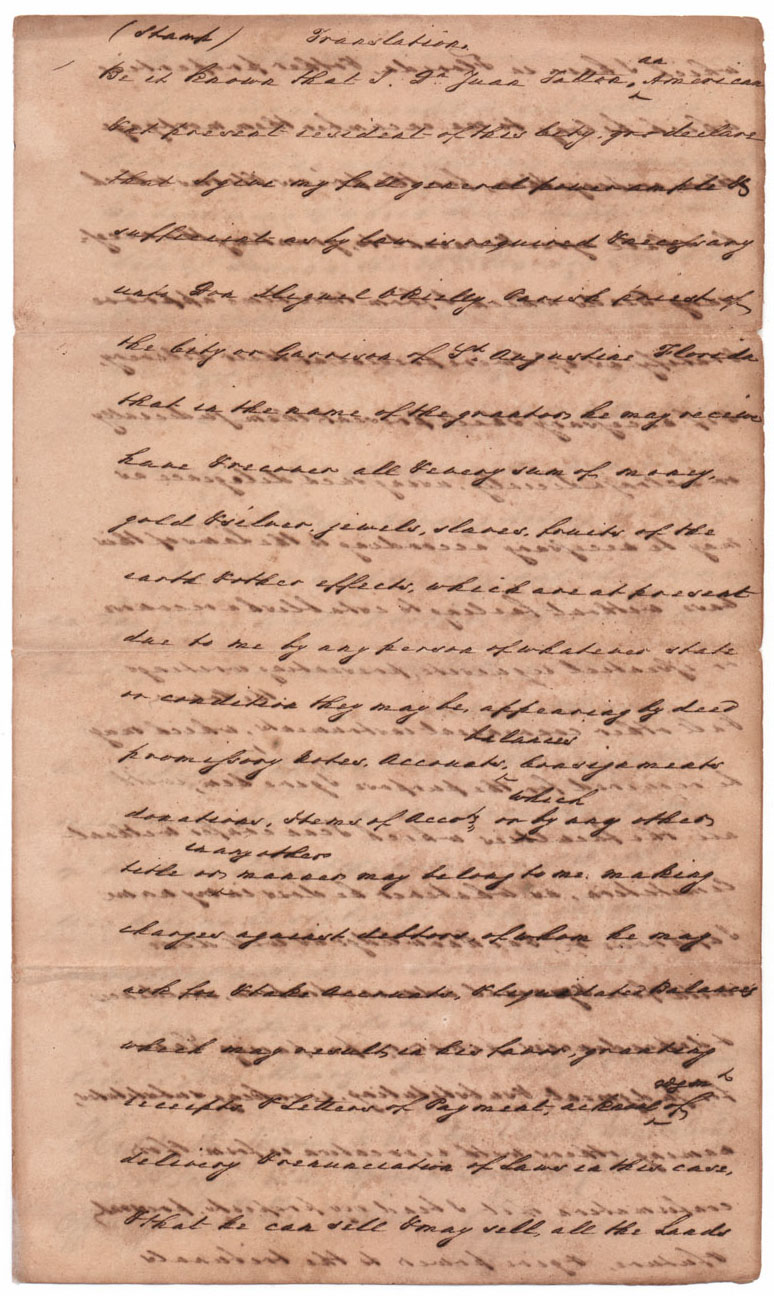 (Stamp) Translation.
Be it known that I. Dn. Juan Tatten, an American
& at present resident of this City, go declare
that I give my full general power ample &
sufficient as by law is required & necessary
unto Don Miguel O'Rielly Parish priest of
the City or Garrison of St. Augustine Florida
that in the name of the grantor, he may receive
have & recover all & every sum of money,
gold & silver, jewels, slaves, fruits of the
earth & other effects, which are at present
due to me by any person of whatever state
or condition they may be, appearing by deed
promissory Notes, Accounts, balances, Consignments
donations, Items of Accots. or by any other, which
title or in any other manner may belong to me. making
charges against debtors, of whom he may
ask for & take Accounts, & liquidate Balances
which may result in his favor, granting
receipts & Letters of Payment, acknowlegmt of
delivery & renunciation of Laws in this case,
& that he can sell & may sell, all the Lands